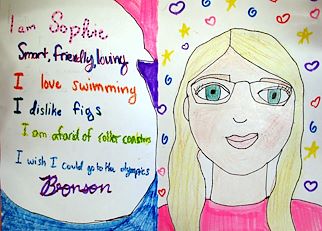 I am Sophie
Smart, friendly, loving
I love swimming
I dislike figs
I am afarid of roller coasters
I wish I could go to the olympics
Bronson